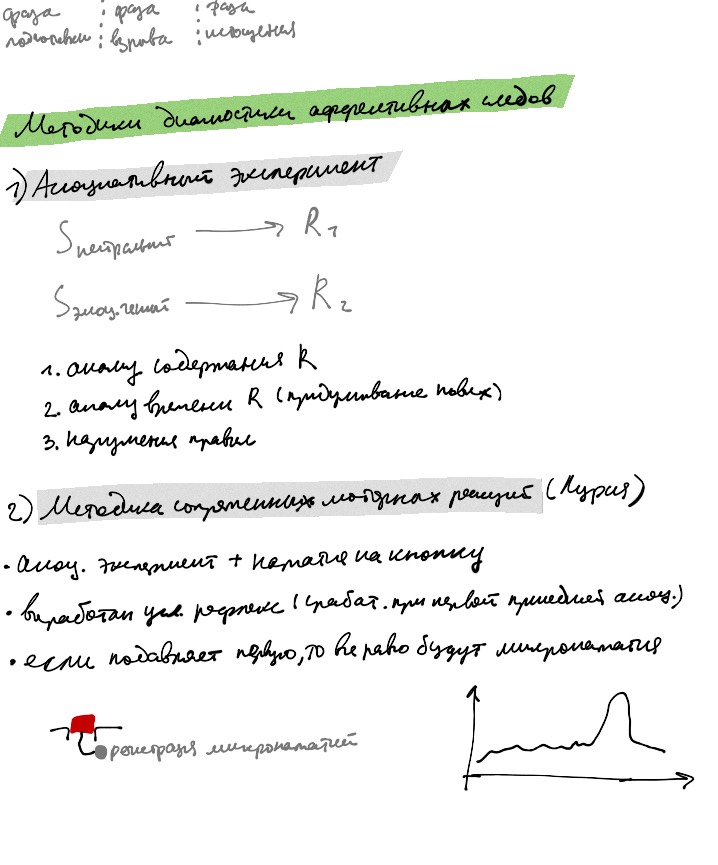 фаза ⋮ фаза ⋮ фаза
подготовки ⋮ взрыва ⋮ истощения
Методики диагностики аффективных следов
1) Ассоциативный эксперимент
S нейтральный → R₁
S эмоц.генный → R₂
1. анализ содержания R
2. анализ времени R (придумывание новых)
3. нарушения правил
2) Методика сопряженных моторных реакций (Лурия)
• ассоц. эксперимент + нажатие на кнопку
• выработан усл. рефлекс (срабат. при первой пришедшей ассоц.)
• если подавляет первую, то все равно будут микронажатия
регистрация микронажатий